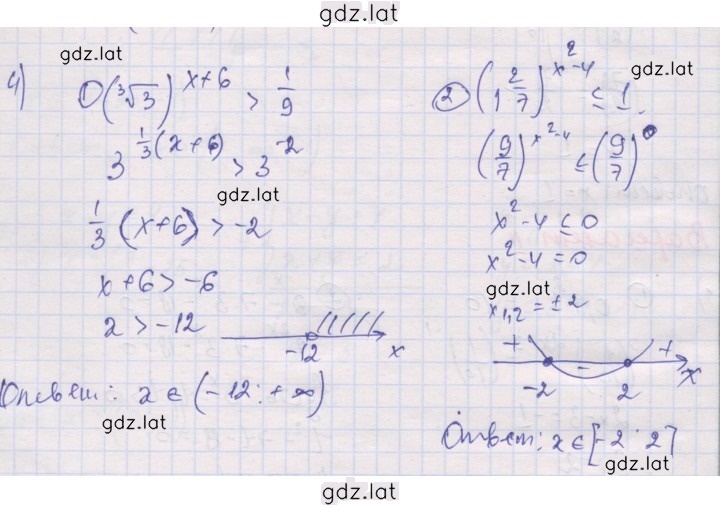 gdz.lat
gdz.lat
4)
① (∛3)^(x+6) > 1/9
3^(1/3(x+6)) > 3^(-2)
gdz.lat
1/3 (x+6) > -2
x+6 > -6
x > -12
-12 x
Ответ: x ∈ (-12; +∞)
gdz.lat
② (1 2/7)^(x²-4) ≤ 1.
gdz.lat
(9/7)^(x²-4) ≤ (9/7)^0
x²-4 ≤ 0
x²-4 = 0
gdz.lat
x₁,₂ = ±2
+ - +
-2 2 x
Ответ: x ∈ [-2; 2]
gdz.lat
gdz.lat